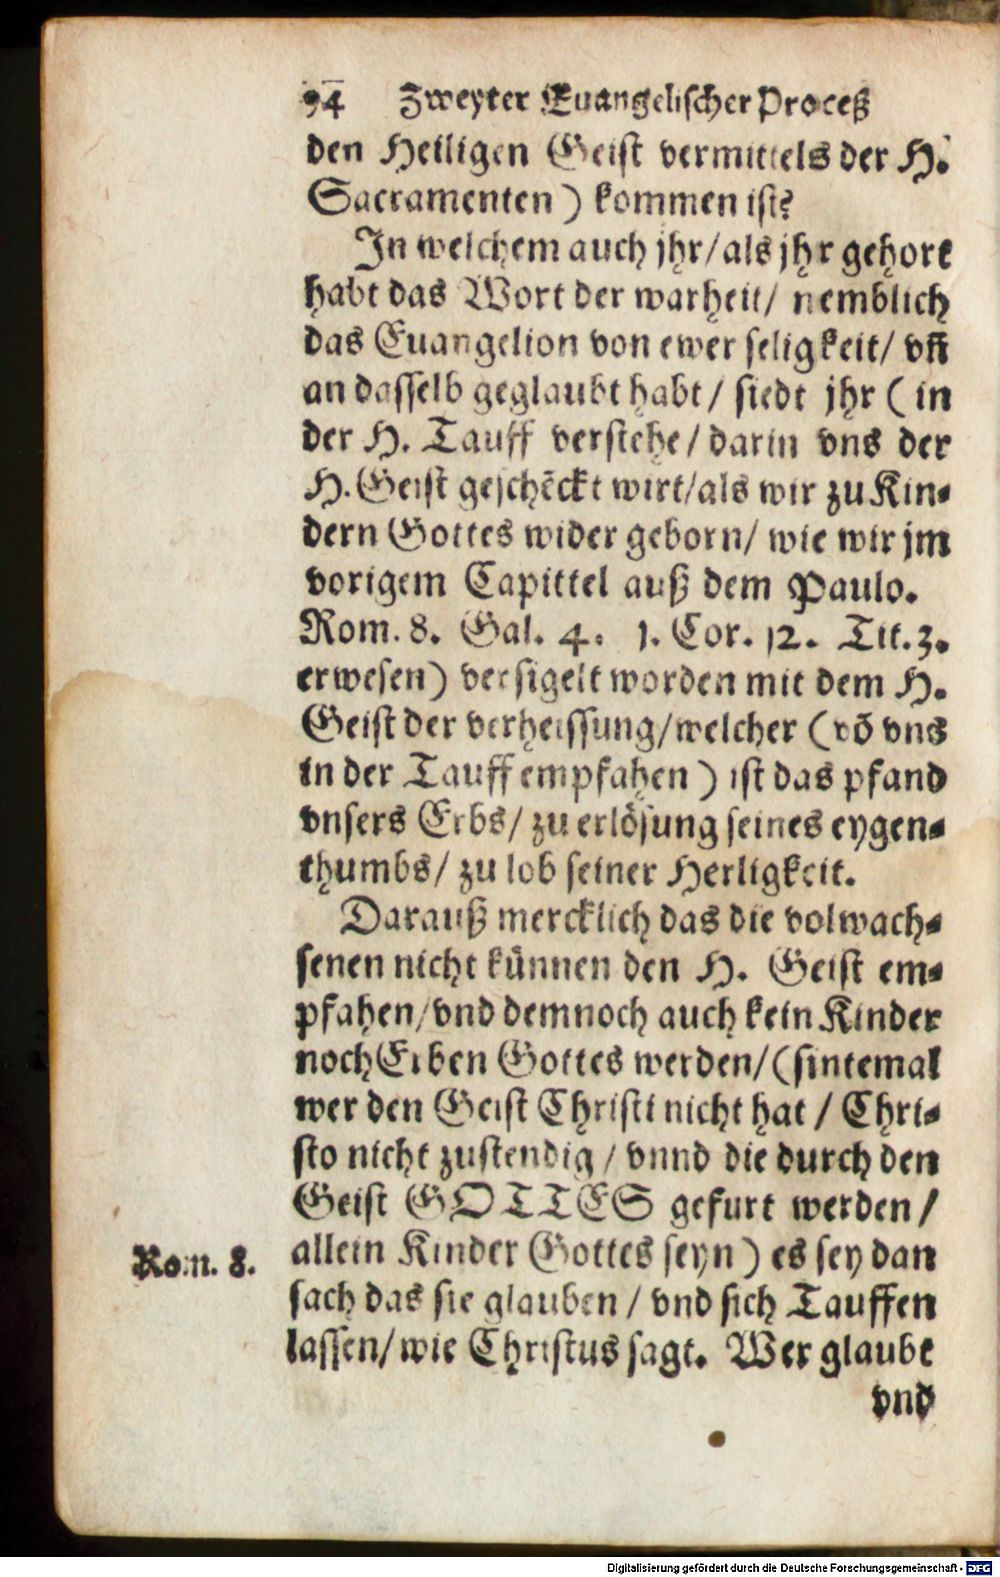 94 Zweyter Euangelischer Proceß
den Heiligen Geist vermittels der H.
Sacramenten) kommen ist?
In welchem auch jhr/als jhr gehort
habt das Wort der warheit/ nemblich
das Euangelion von ewer seligkeit/ vñ
an dasselb geglaubt habt/ siedt jhr (in
der H. Tauff verstehe/darin vns der
H. Geist geschẽckt wirt/als wir zu Kin-
dern Gottes wider geborn/ wie wir jm
vorigem Capittel auß dem Paulo.
Rom. 8. Gal. 4. 1. Cor. 12. Tit. 3.
erwesen) versigelt worden mit dem H.
Geist der verheissung/welcher (võ vns
in der Tauff empfahen) ist das pfand
vnsers Erbs/ zu erlösung seines eygen-
thumbs/ zu lob seiner Herligkeit.
Darauß mercklich das die volwach-
senen nicht künnen den H. Geist em-
pfahen/vnd demnoch auch kein Kinder
noch Erben Gottes werden/(sintemal
wer den Geist Christi nicht hat / Chri-
sto nicht zustendig / vnnd die durch den
Geist GOTTES gefurt werden/
Rom. 8. allein Kinder Gottes seyn) es sey dan
sach das sie glauben / vnd sich Tauffen
lassen/wie Christus sagt. Wer glaubt
vnd
Digitalisierung gefördert durch die Deutsche Forschungsgemeinschaft - DFG